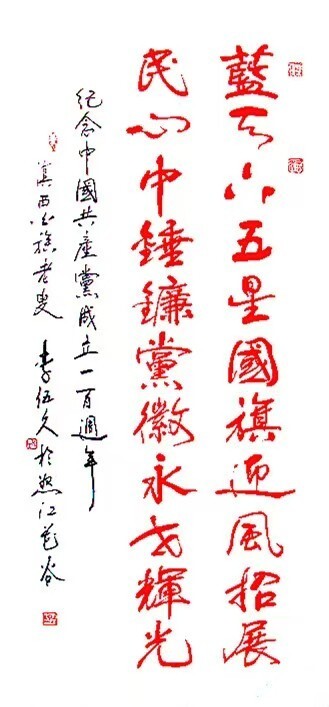 藍天下五星國旗迎風招展
民心中錘鐮黨徽永輝光
紀念中國共產黨成立一百週年
滇西族老叟 李伍久於怒江谷